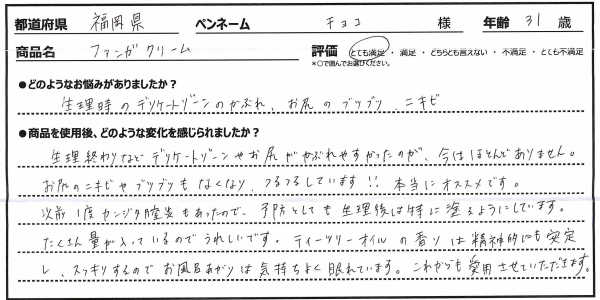 都道府県 福岡県 ペンネーム チョコ 様 年齢 31 歳
商品名 ファンガクリーム 評価 とても満足 ・ 満足 ・ どちらとも言えない ・ 不満足 ・ とても不満足
*○で囲んでお選びください。
●どのようなお悩みがありましたか？
生理時のデリケートゾーンのかぶれ、お尻のブツブツ、ニキビ
●商品を使用後、どのような変化を感じられましたか？
生理終わりなどデリケートゾーンやお尻がかぶれやすかったのが、今はほとんどありません。
お尻のニキビやブツブツもなくなり、つるつるしています!! 本当にオススメです。
以前1度カンジタ膣炎もあったので、予防としても生理後は特に塗るようにしています。
たくさん量が入っているのでうれしいです。ティーツリーオイルの香りは精神的にも安定
し、スッキリするのでお風呂あがりは気持ちよく眠れています。これからも愛用させていただきます。